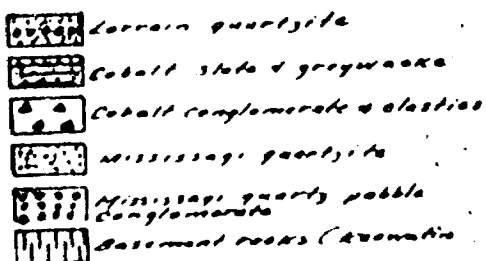 Lorrain quartzite
Cobalt slate & greywacke
Cobalt conglomerate & clastics
Mississagi quartzite
Mississagi quartz pebble
conglomerate
Basement rocks (Keewatin